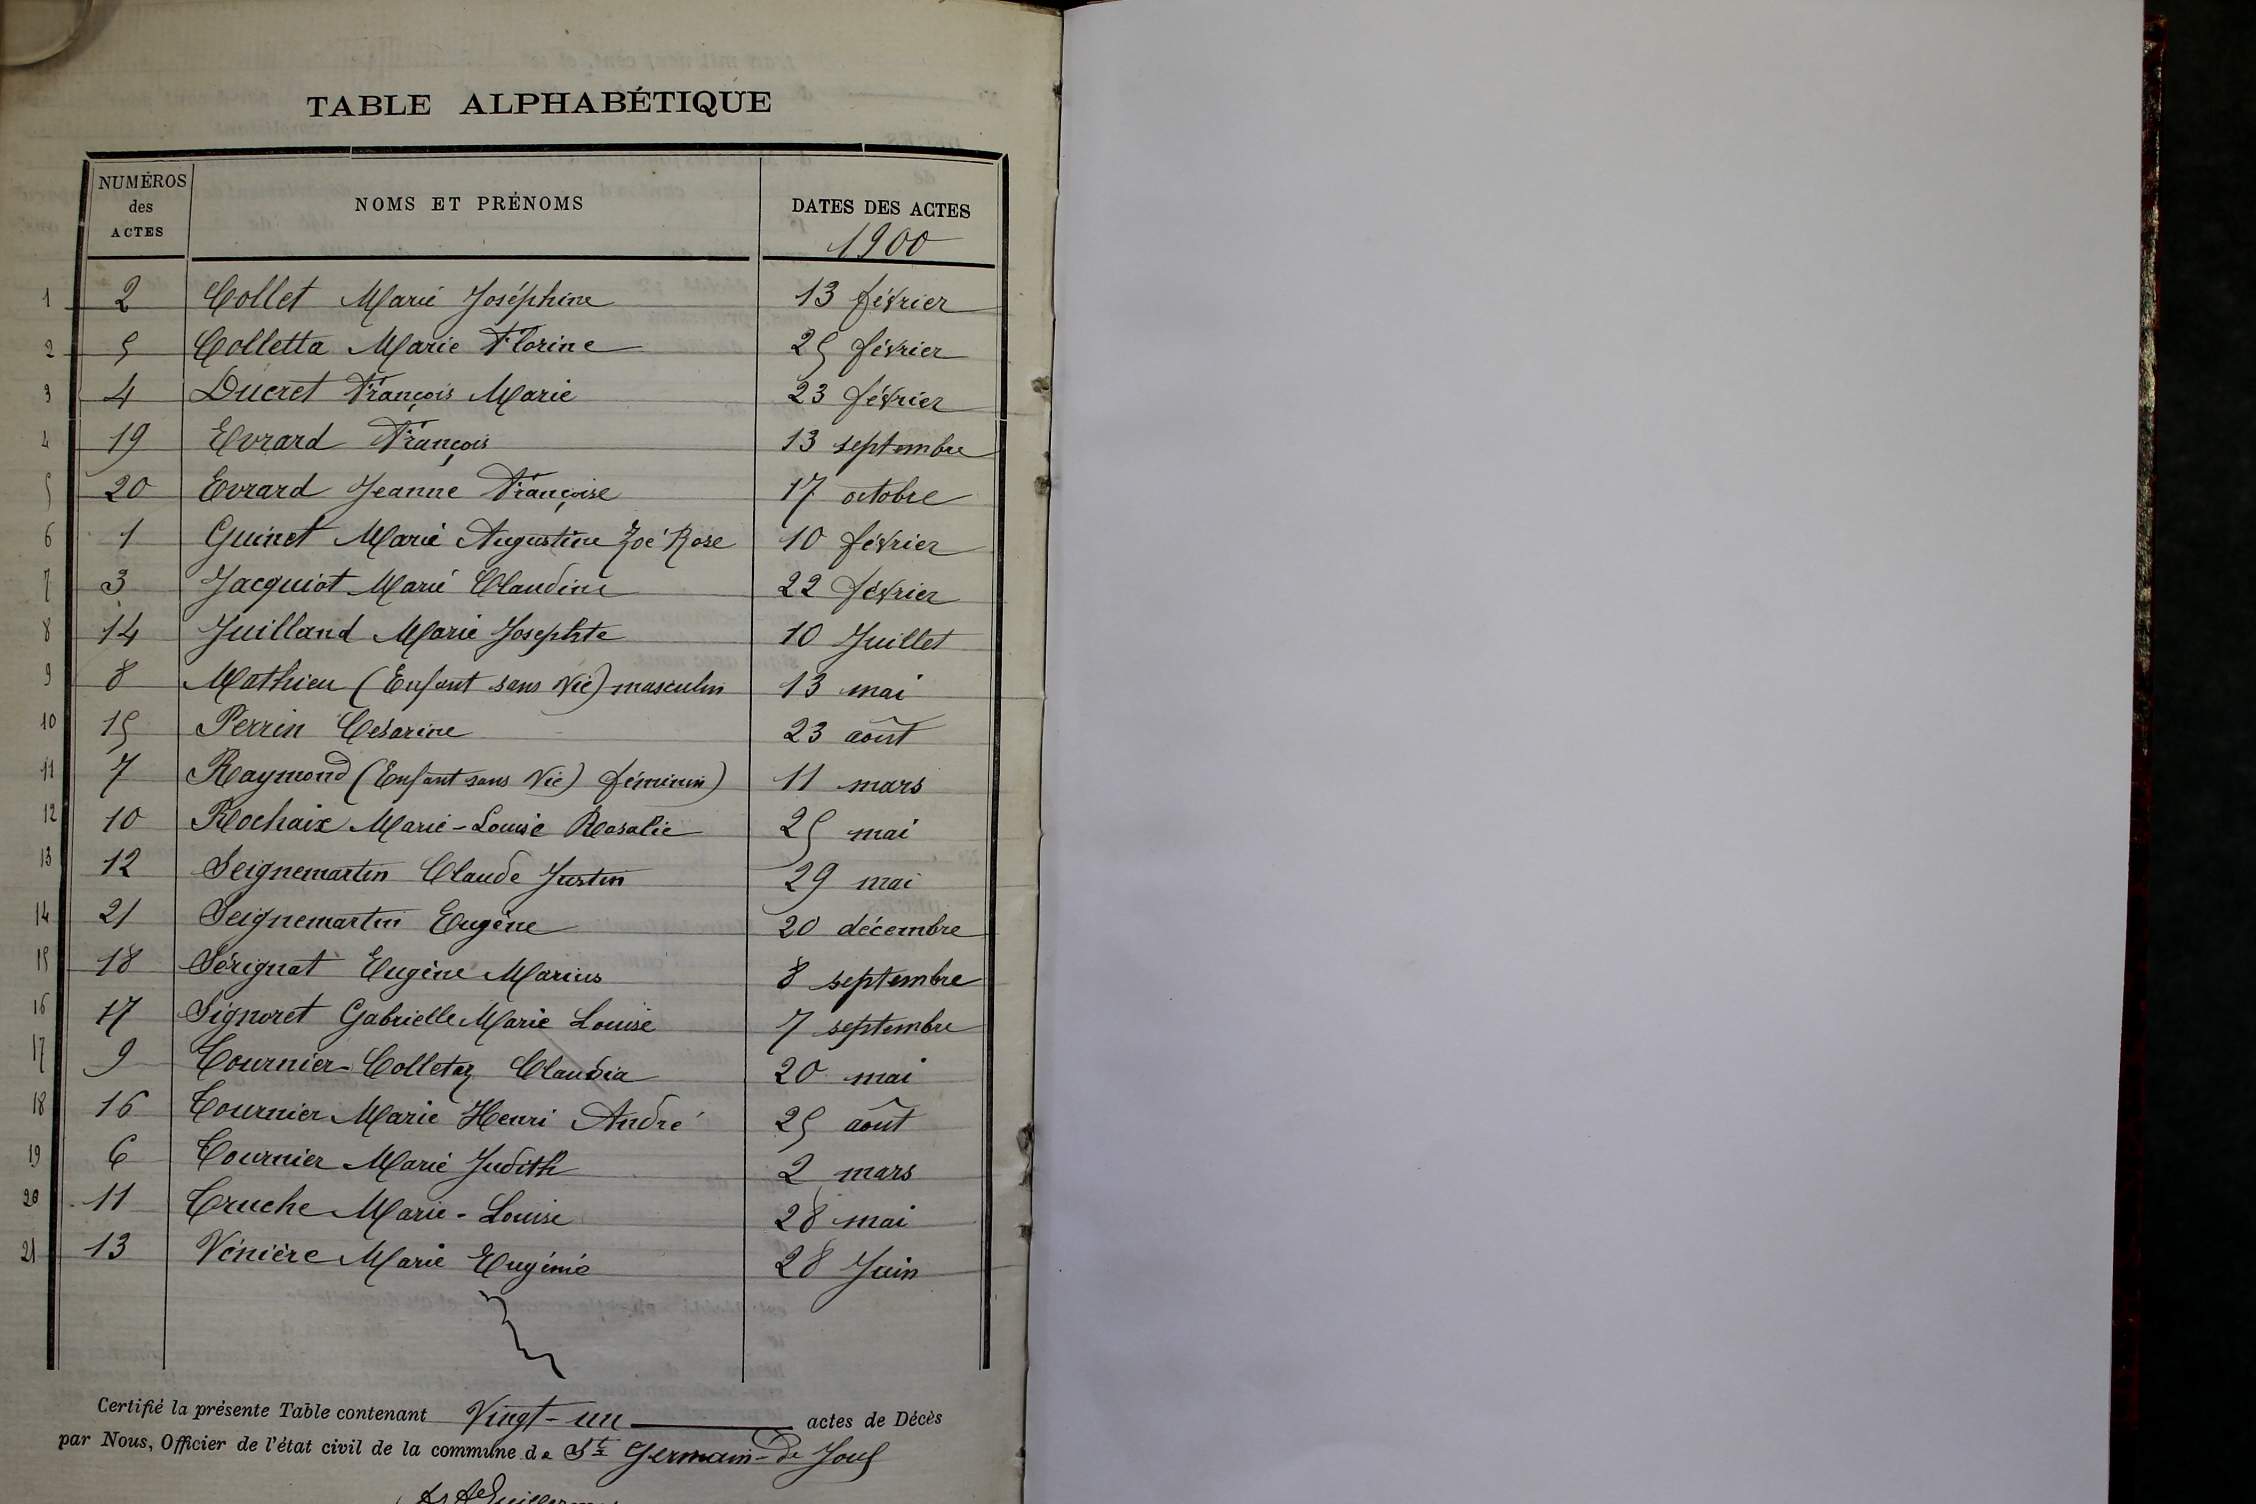 TABLE ALPHABÉTIQUE
NUMÉROS des ACTES NOMS ET PRÉNOMS DATES DES ACTES
1900
1 2 Collet Marie Joséphine 13 février
2 5 Colletta Marie Florine 25 février
3 4 Ducret François Marie 23 février
4 19 Evrard François 13 septembre
5 20 Evrard Jeanne Françoise 17 octobre
6 1 Guinet Marie Augustine Zoé Rose 10 février
7 3 Jacquiot Marie Claudine 22 février
8 14 Juilland Marie Josephte 10 Juillet
9 8 Mathieu (Enfant sans Vie) masculin 13 mai
10 15 Perrin Cesarine 23 août
11 7 Raymond (Enfant sans Vie) féminin) 11 mars
12 10 Rochaix Marie-Louise Rosalie 25 mai
13 12 Seignemartin Claude Justin 29 mai
14 21 Seignemartin Eugène 20 décembre
15 18 Sérignat Eugène Marius 8 septembre
16 17 Signoret Gabrielle Marie Louise 7 septembre
17 9 Tournier-Colletaz Claudia 20 mai
18 16 Tournier Marie Henri André 25 août
19 6 Tournier Marie Judith 2 mars
20 11 Truche Marie-Louise 28 mai
21 13 Vénière Marie Eugénie 28 Juin
Certifié la présente Table contenant Vingt-un actes de Décès
par Nous, Officier de l'état civil de la commune de St Germain-de Joux